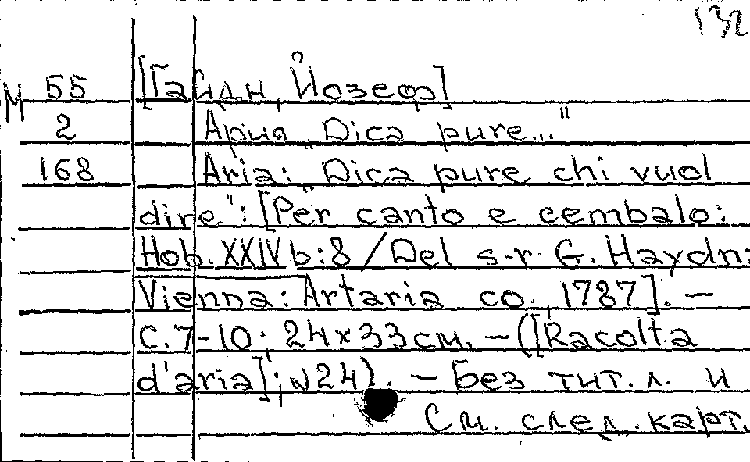 132
М 55 [Гайдн, Йозеф]
2 Ария „Dica pure..."
168 Aria: „Dica pure chi vuol
dire": [Per canto e cembalo:
Hob. XXIV b: 8 / Del s-r G. Haydn:
Vienna: Artaria co. 1787]. –
С. 7-10; 24x33 см. – ([Racolta
d'aria]; N24). – Без тит. л. и
См. след. карт.